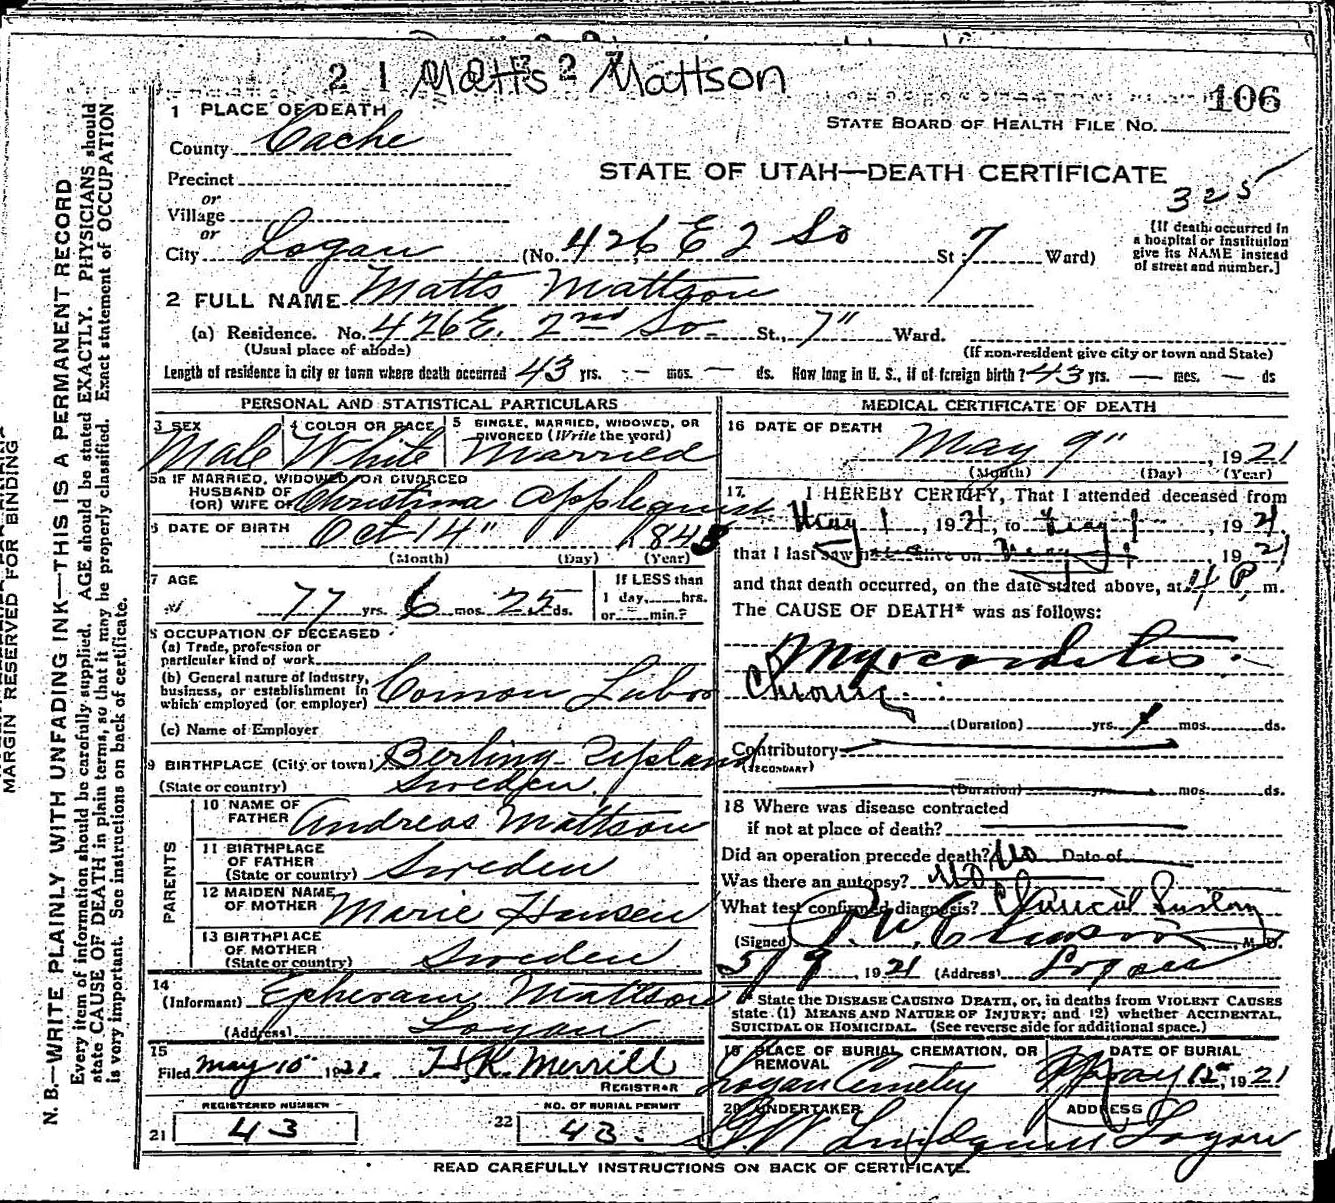 2 1 Matts 2 7 Mattson
106
1 PLACE OF DEATH
STATE BOARD OF HEALTH FILE NO.
County Cache
STATE OF UTAH—DEATH CERTIFICATE
Precinct
or
325
Village
or
[If death occurred in
a hospital or institution
give its NAME instead
of street and number.]
City Logan (No. 426 E 2 So St; 7 Ward)
2 FULL NAME Matts Mattson
(a) Residence. No. 426 E. 2nd So St., 7" Ward.
(Usual place of abode) (If non-resident give city or town and State)
Length of residence in city or town where death occurred 43 yrs. — mos. — ds. How long in U. S., if of foreign birth? 43 yrs. — mos. — ds
PERSONAL AND STATISTICAL PARTICULARS
3 SEX 4 COLOR OR RACE 5 SINGLE, MARRIED, WIDOWED, OR
DIVORCED (Write the word)
Male White Married
5a IF MARRIED, WIDOWED, OR DIVORCED
HUSBAND OF
(OR) WIFE OF Christina Applequist
6 DATE OF BIRTH Oct 14" 1843
(Month) (Day) (Year)
7 AGE
77 yrs. 6 mos. 25 ds.
If LESS than
1 day, hrs.
or min.?
8 OCCUPATION OF DECEASED
(a) Trade, profession or
particular kind of work
(b) General nature of industry,
business, or establishment in
which employed (or employer) Comon Labor
(c) Name of Employer
9 BIRTHPLACE (City or town) Berling
(State or country) Sweden
PARENTS
10 NAME OF
FATHER Andreas Mattson
11 BIRTHPLACE
OF FATHER
(State or country) Sweden
12 MAIDEN NAME
OF MOTHER Marie Hansen
13 BIRTHPLACE
OF MOTHER
(State or country) Sweden
14
(Informant) Epheram Mattson
(Address) Logan
15
Filed May 10 1921. H.K. Merrill
REGISTRAR
REGISTERED NUMBER NO. OF BURIAL PERMIT
21 43 22 43
MEDICAL CERTIFICATE OF DEATH
16 DATE OF DEATH
May 9" , 1921
(Month) (Day) (Year)
17. I HEREBY CERTIFY, That I attended deceased from
May 1 , 1921, to May 9 , 1921,
that I last saw alive on May 9 1921
and that death occurred, on the date stated above, at 4 P. m.
The CAUSE OF DEATH* was as follows:
Myocarditis.
Chronic
(Duration) yrs. mos. ds.
Contributory
(SECONDARY)
(Duration) yrs. mos. ds.
18 Where was disease contracted
if not at place of death?
Did an operation precede death? No Date of
Was there an autopsy? No
What test confirmed diagnosis? Clinical History
(Signed) M. D.
5/9, 1921 (Address) Logan
* State the DISEASE CAUSING DEATH, or, in deaths from VIOLENT CAUSES
state (1) MEANS AND NATURE OF INJURY; and (2) whether ACCIDENTAL,
SUICIDAL OR HOMICIDAL. (See reverse side for additional space.)
19 PLACE OF BURIAL CREMATION, OR
REMOVAL
Logan Cemetery
DATE OF BURIAL
May 12", 1921
20 UNDERTAKER ADDRESS
G.W. Lindquist Logan
READ CAREFULLY INSTRUCTIONS ON BACK OF CERTIFICATE.
MARGIN RESERVED FOR BINDING
N. B.—WRITE PLAINLY WITH UNFADING INK—THIS IS A PERMANENT RECORD
Every item of information should be carefully supplied. AGE should be stated EXACTLY. PHYSICIANS should
state CAUSE OF DEATH in plain terms, so that it may be properly classified. Exact statement of OCCUPATION
is very important. See instructions on back of certificate.